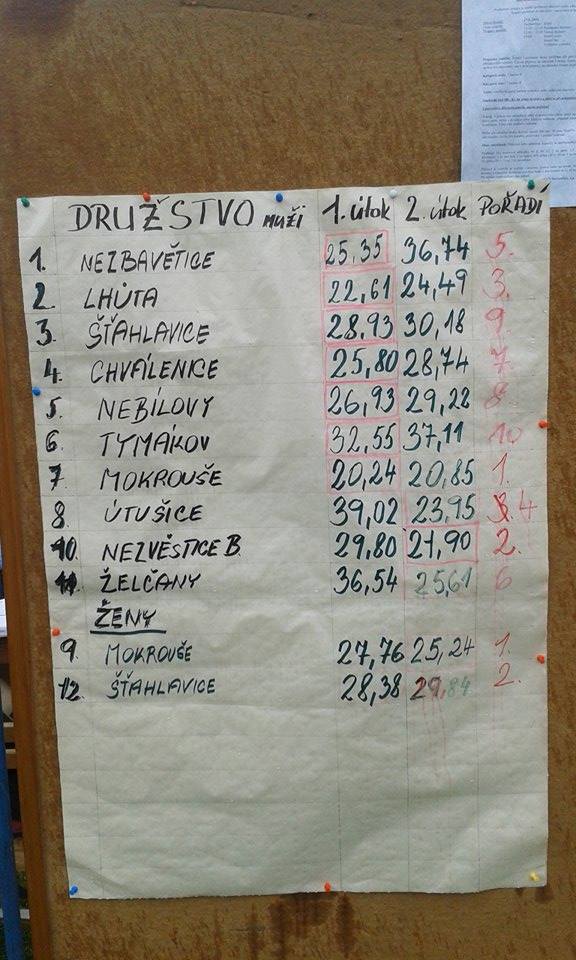 DRUŽSTVO MUŽI 1. útok 2. útok POŘADÍ
1. NEZBAVĚTICE 25,35 36,74 5.
2. LHŮTA 22,61 24,49 3.
3. ŠŤAHLAVICE 28,93 30,18 9.
4. CHVÁLENICE 25,80 28,74 7.
5. NEBÍLOVY 26,93 29,22 8.
6. TYMÁKOV 32,55 37,11 10
7. MOKROUŠE 20,24 20,85 1.
8. ÚTUŠICE 39,02 23,95 4
10. NEZVĚSTICE B. 29,80 21,90 2.
11. ŽELČANY 36,54 25,61 6
ŽENY
9. MOKROUŠE 27,76 25,24 1.
12. ŠŤAHLAVICE 28,38 29,84 2.